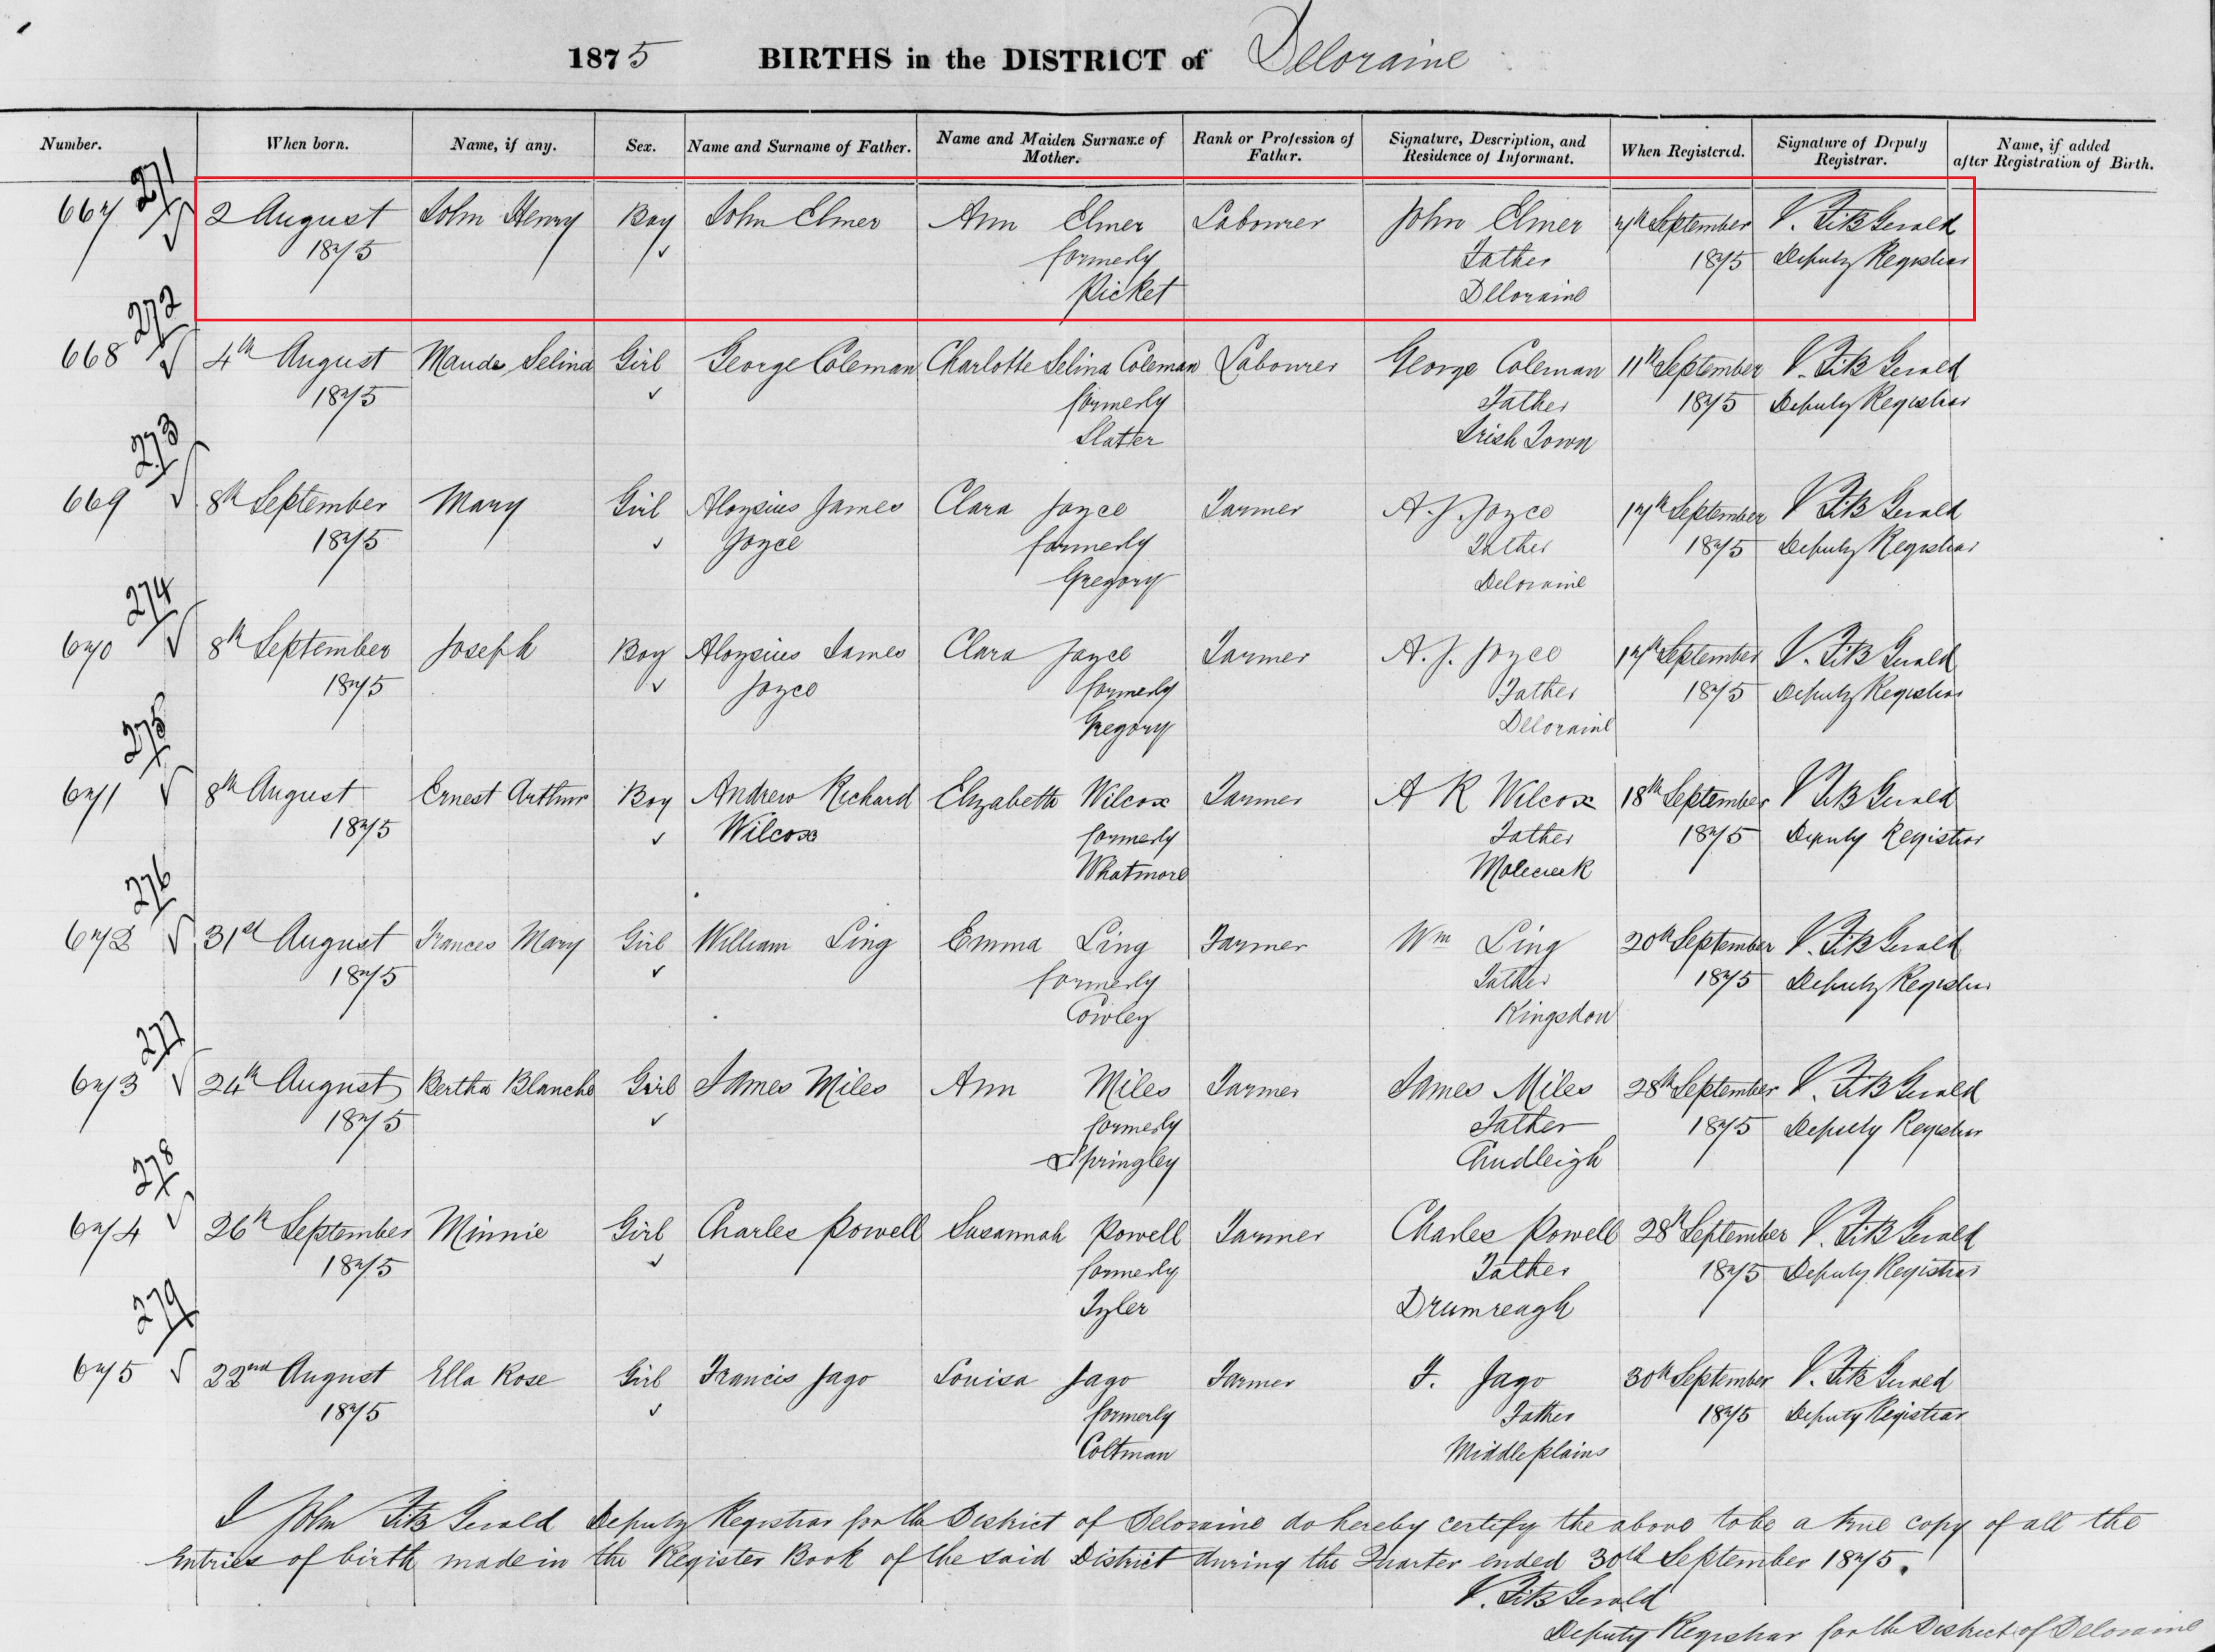 1875 BIRTHS in the DISTRICT of Deloraine
Number. When born. Name, if any. Sex. Name and Surname of Father. Name and Maiden Surname of Mother. Rank or Profession of Father. Signature, Description, and Residence of Informant. When Registered. Signature of Deputy Registrar. Name, if added after Registration of Birth.
271
667 2 August John Henry Boy John Elmer Ann Elmer Labourer John Elmer 7th September V. FitzGerald
1875 formerly Father 1875 Deputy Registrar
Picket Deloraine
272
668 4th August Maude Selina Girl George Coleman Charlotte Selina Coleman Labourer George Coleman 11th September V. FitzGerald
1875 formerly Father 1875 Deputy Registrar
Slatter Irish Town
273
669 8th September Mary Girl Aloysius James Clara Joyce Farmer A. J. Joyce 17th September V FitzGerald
1875 Joyce formerly Father 1875 Deputy Registrar
Gregory Deloraine
274
670 8th September Joseph Boy Aloysius James Clara Joyce Farmer A. J. Joyce 17th September V. FitzGerald
1875 Joyce formerly Father 1875 Deputy Registrar
Gregory Deloraine
275
671 8th August Ernest Arthur Boy Andrew Richard Elizabeth Wilcox Farmer A R Wilcox 18th September V FitzGerald
1875 Wilcox formerly Father 1875 Deputy Registrar
Whatmore Molecreek
276
672 31st August Frances Mary Girl William Ling Emma Ling Farmer Wm Ling 20th September V. FitzGerald
1875 formerly Father 1875 Deputy Registrar
Cowley Kingsdon
277
673 24th August Bertha Blanche Girl James Miles Ann Miles Farmer James Miles 28th September V. FitzGerald
1875 formerly Father 1875 Deputy Registrar
Springley Chudleigh
278
674 26th September Minnie Girl Charles Powell Susannah Powell Farmer Charles Powell 28th September V. FitzGerald
1875 formerly Father 1875 Deputy Registrar
Tyler Drumreagh
279
675 22nd August Ella Rose Girl Francis Jago Louisa Jago Farmer F. Jago 30th September V. FitzGerald
1875 formerly Father 1875 Deputy Registrar
Coltman Middleplains
I John FitzGerald Deputy Registrar for the District of Deloraine do hereby certify the above to be a true copy of all the
Entries of birth made in the Register Book of the said District during the Quarter ended 30th September 1875.
V. FitzGerald
Deputy Registrar for the District of Deloraine